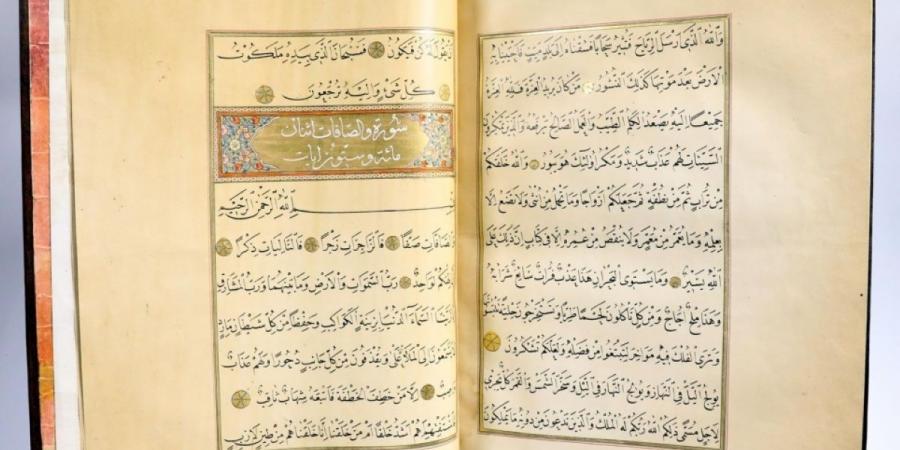 وَاللّٰهُ الَّذِي اَرْسَلَ الرِّيَاحَ فَتُثِيرُ سَحَابًا فَسُقْنَاهُ اِلٰى بَلَدٍ مَيِّتٍ فَاَحْيَيْنَا بِهِ
الْاَرْضَ بَعْدَ مَوْتِهَا كَذٰلِكَ النُّشُورُ مَنْ كَانَ يُرِيدُ الْعِزَّةَ فَلِلّٰهِ الْعِزَّةُ
جَمِيعًا اِلَيْهِ يَصْعَدُ الْكَلِمُ الطَّيِّبُ وَالْعَمَلُ الصَّالِحُ يَرْفَعُهُ وَالَّذِينَ يَمْكُرُونَ
السَّيِّئَاتِ لَهُمْ عَذَابٌ شَدِيدٌ وَمَكْرُ اُولٰئِكَ هُوَ يَبُورُ وَاللّٰهُ خَلَقَكُمْ
مِنْ تُرَابٍ ثُمَّ مِنْ نُطْفَةٍ ثُمَّ جَعَلَكُمْ اَزْوَاجًا وَمَا تَحْمِلُ مِنْ اُنْثٰى وَلَا تَضَعُ اِلَّا
بِعِلْمِهِ وَمَا يُعَمَّرُ مِنْ مُعَمَّرٍ وَلَا يُنْقَصُ مِنْ عُمُرِهِ اِلَّا فِي كِتَابٍ اِنَّ ذٰلِكَ عَلَى
اللّٰهِ يَسِيرٌ وَمَا يَسْتَوِي الْبَحْرَانِ هٰذَا عَذْبٌ فُرَاتٌ سَائِغٌ شَرَابُهُ
وَهٰذَا مِلْحٌ اُجَاجٌ وَمِنْ كُلٍّ تَاْكُلُونَ لَحْمًا طَرِيًّا وَتَسْتَخْرِجُونَ حِلْيَةً تَلْبَسُونَهَا
وَتَرَى الْفُلْكَ فِيهِ مَوَاخِرَ لِتَبْتَغُوا مِنْ فَضْلِهِ وَلَعَلَّكُمْ تَشْكُرُونَ
يُولِجُ الَّيْلَ فِي النَّهَارِ وَيُولِجُ النَّهَارَ فِي الَّيْلِ وَسَخَّرَ الشَّمْسَ وَالْقَمَرَ كُلٌّ يَجْرِي
لِاَجَلٍ مُسَمًّى ذٰلِكُمُ اللّٰهُ رَبُّكُمْ لَهُ الْمُلْكُ وَالَّذِينَ تَدْعُونَ مِنْ دُونِهِ مَا يَمْلِكُونَ
يَقُولَ لَهُ كُنْ فَيَكُونُ فَسُبْحَانَ الَّذِي بِيَدِهِ مَلَكُوتُ
كُلِّ شَيْءٍ وَاِلَيْهِ تُرْجَعُونَ
سورة والصافات اثنان
مائة وستون آيات
اللّٰهِ الرَّحْمٰنِ الرَّحِيمِ
وَالصَّافَّاتِ صَفًّا فَالزَّاجِرَاتِ زَجْرًا فَالتَّالِيَاتِ ذِكْرًا
لَوَاحِدٌ رَبُّ السَّمٰوَاتِ وَالْاَرْضِ وَمَا بَيْنَهُمَا وَرَبُّ الْمَشَارِقِ
السَّمَاءَ الدُّنْيَا بِزِينَةٍ الْكَوَاكِبِ وَحِفْظًا مِنْ كُلِّ شَيْطَانٍ مَارِدٍ
يَسَّمَّعُونَ اِلَى الْمَلَاِ الْاَعْلٰى وَيُقْذَفُونَ مِنْ كُلِّ جَانِبٍ دُحُورًا وَلَهُمْ عَذَابٌ
وَاصِبٌ اِلَّا مَنْ خَطِفَ الْخَطْفَةَ فَاَتْبَعَهُ شِهَابٌ ثَاقِبٌ
فَاسْتَفْتِهِمْ اَهُمْ اَشَدُّ خَلْقًا اَمْ مَنْ خَلَقْنَا اِنَّا خَلَقْنَاهُمْ مِنْ طِينٍ لَازِبٍ